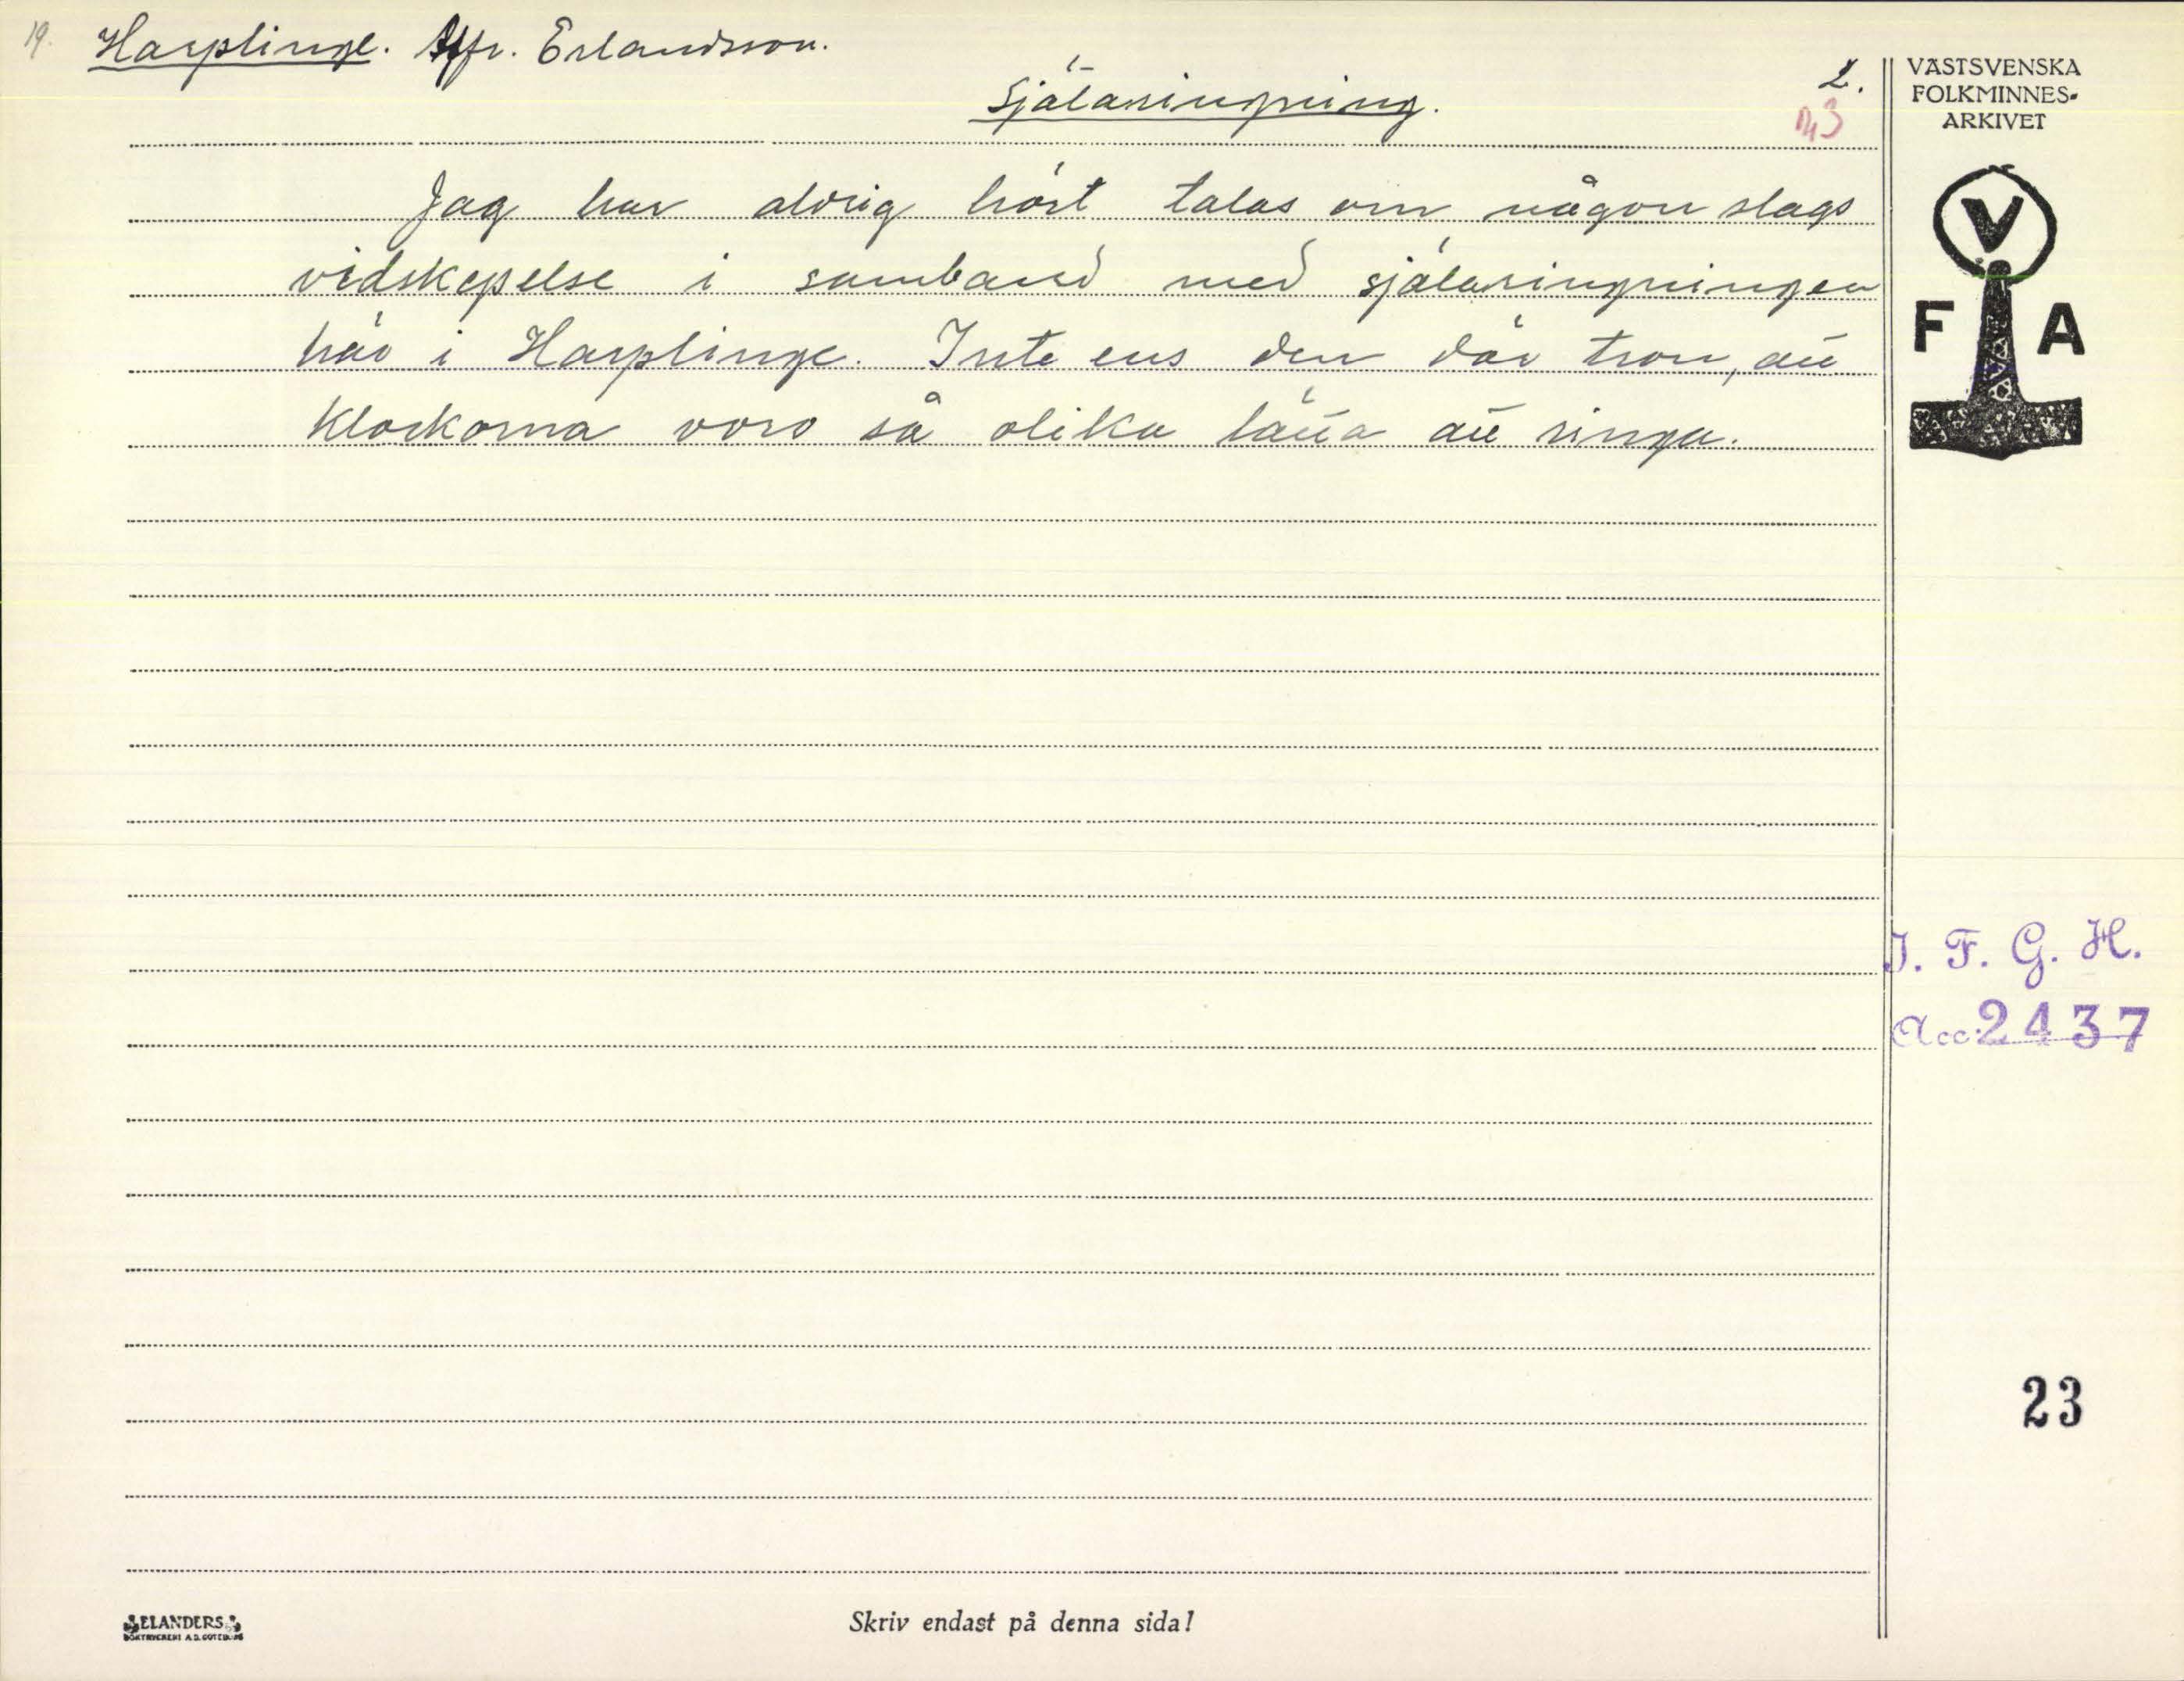 19. Harplinge. Alfr. Erlandsson.
2.
Själaringning.
VÄSTSVENSKA
FOLKMINNES-
ARKIVET
Jag har aldrig hört talas om någon slags
vidskepelse i samband med själaringningen
här i Harplinge. Inte ens den där tron, att
klockorna voro så olika lätta att ringa.
V
F A
I. F. G. H.
Acc. 2437
23
ELANDERS
BOKTRYCKERI A.B. GÖTEBORG
Skriv endast på denna sida!